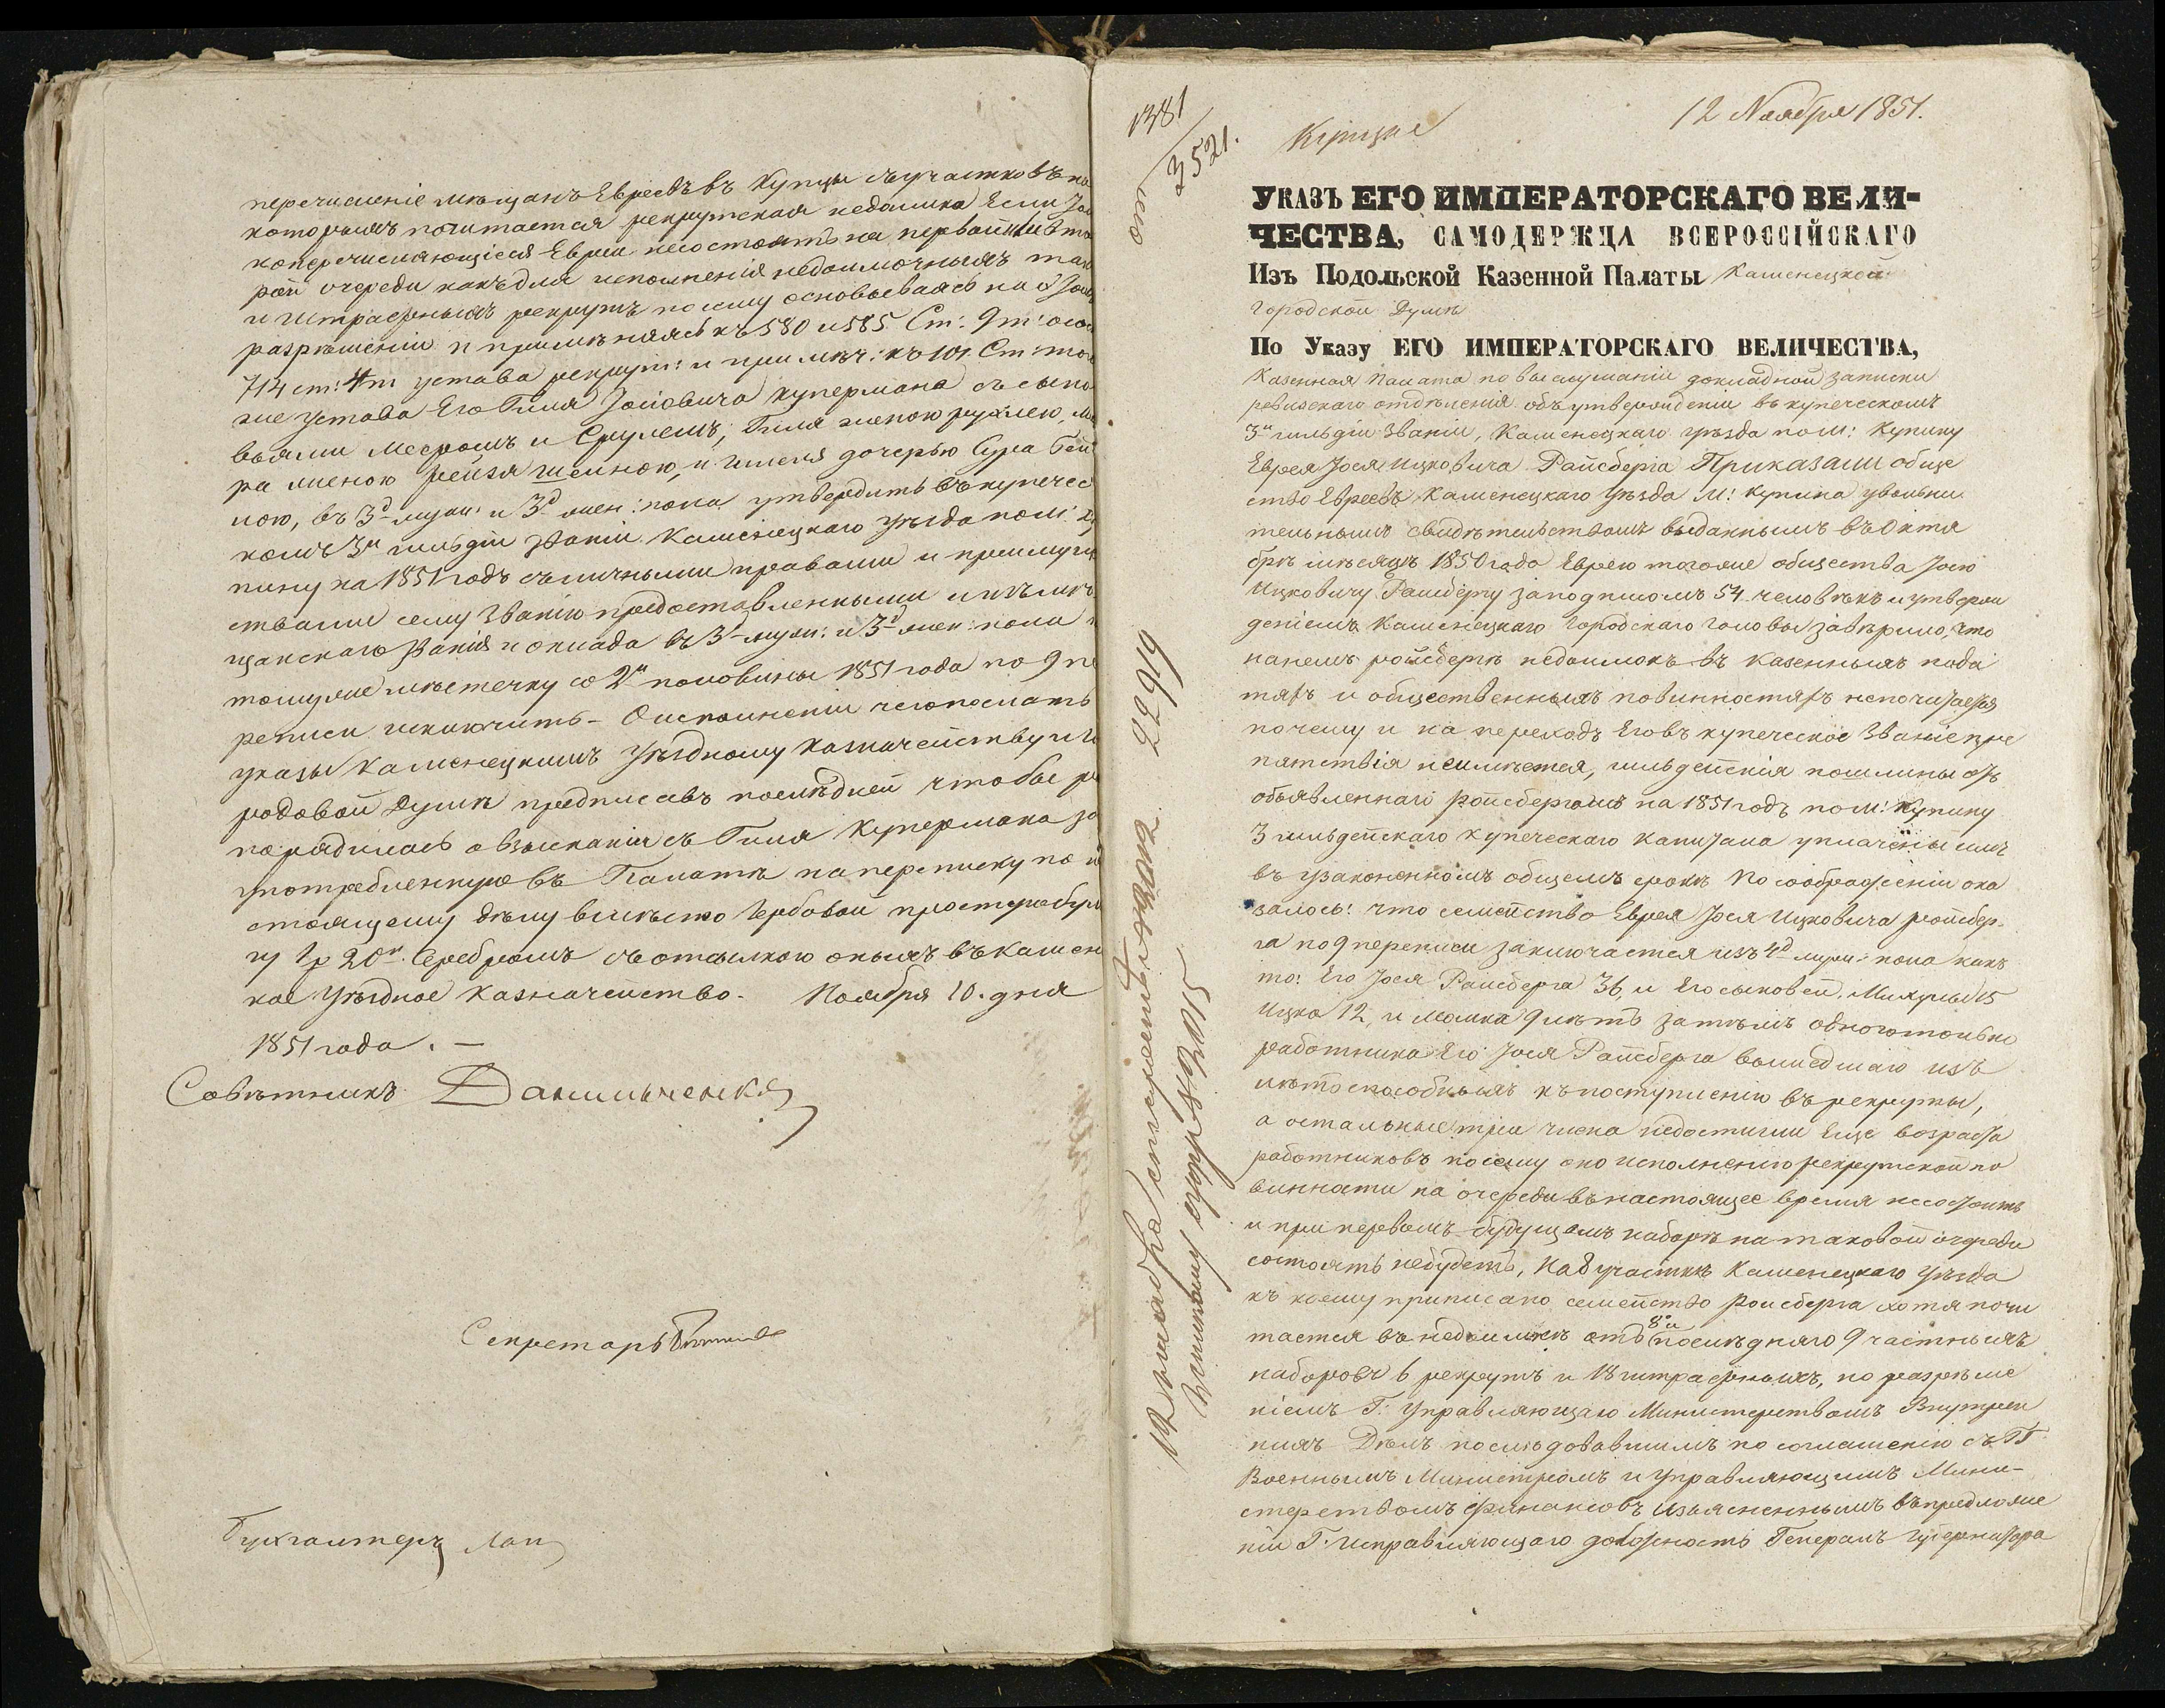 перечисленіе мѣщанъ Евреевъ въ Купцы съ участковъ на
которыхъ почитается рекрутская недоимка Если
коперечисляющіеся Евреи несостоятъ на первой или вто
рой очереди какъ для исполненія недоимочныхъ так
и штрафныхъ рекрутъ посему основываясь на
разрѣшеніи и примѣняясь къ 580 и 585 Ст: 9 т:
714 ст: 4 т устава рекрут: и примѣч: къ 101 Ст:
же устава Его Гиля Іосіовича Купермана съ сыно
вьями Меером и Срулемъ, Гиля женою Рухлею,
ра женою Рейзя и дочерью Сура
ною, въ 3д муж: и 3д жен: пола утвердить въ купечес
комъ 3й гильдіи званіи Каменецкаго уѣзда по м: Ку
пину на 1851 годъ съ личными правами и преимуще
ствами сему званію предоставленными и изъ мѣ
щанскаго званія и оклада въ 3д муж: и 3д жен: пола
томуже мѣстечку со 2й половины 1851 года по 9 пе
реписи исключить – О исполненіи чего послать
указы Каменецкимъ Уѣздному Казначейству и Го
родовой Думѣ предписавъ послѣдней чтобы ра
порядилась о взысканіи съ Гиля Купермана за
употребленную въ Палатѣ на переписку по на
стоящему дѣлу вмѣсто Гербовой простую бума
гу 1р 20к. Серебромъ съ отсылкою оныхъ въ Камен
кое Уѣздное Казначейство. Ноября 10. дня
1851 года. –
Совѣтникъ Данильченко
Секретарь
Бухгалтеръ Лап
1381
3521.
12 Ноября 1851.
УКАЗЪ ЕГО ИМПЕРАТОРСКАГО ВЕЛИ-
ЧЕСТВА, САМОДЕРЖЦА ВСЕРОССІЙСКАГО
Изъ Подольской Казенной Палаты Каменецкой
городской Думѣ
По Указу ЕГО ИМПЕРАТОРСКАГО ВЕЛИЧЕСТВА,
Казенная Палата по выслушаніи докладной записки
ревизскаго отдѣленія объ утвержденіи въ купеческомъ
3й гильдіи званіи, Каменецкаго уѣзда по м: Купину
Еврея Іося Ицковича Райсберга Приказали обще
ство Евреевъ Каменецкаго уѣзда М: Купина увольни
тельнымъ свидѣтельствомъ выданнымъ въ Октя
брѣ мѣсяцѣ 1850 года Еврею тогоже общества Іосю
Ицковичу Райсбергу за подписомъ 54 человѣкъ и утверж
деніемъ Каменецкаго Городскаго Головы завѣрило, что
на немъ Ройсбергѣ недоимокъ въ казенныхъ пода
тяхъ и общественныхъ повинностяхъ непочитается
почему и на переходъ Его въ купеческое званіе пре
пятствія неимѣется, гильдейскія пошлины отъ
объявленнаго Ройсбергомъ на 1851 годъ по м: Купину
3 гильдейскаго купеческаго капитала уплачены имъ
въ узаконенномъ общемъ срокѣ По соображеніи ока
залось: что семейство Еврея Іося Ицковича Ройсбер-
га по 9 переписи заключается изъ 4д муж: пола какъ
то: Его Іося Райсберга 36, и Его сыновей, 15
Ицка 12, и Мошка 9 лѣтъ затѣмъ одного только
работника Его Іося Райсберга вышедшаго изъ
лѣтъ способныхъ къ поступленію въ рекруты,
а остальные три члена недостигли Еще возраста
работниковъ посему оно исполненію рекрутской по
винности на очереди въ настоящее время несостоитъ
и при первомъ будущемъ наборѣ на таковой очереди
состоять небудетъ, На 8 участкѣ Каменецкаго уѣзда
къ коему приписано семейство Ройсберга хотя почи
тается въ недоимкѣ отъ 8го и послѣдняго 9 частныхъ
наборовъ 6 рекрутъ и 18 штрафныхъ, но разрѣше
ніемъ Г. Управляющаго Министерствомъ Внутрен
нихъ Дѣлъ послѣдовавшимъ по соглашенію съ ГГ
Военнымъ Министромъ и управляющимъ Мини-
стерствомъ Финансовъ изъясненнымъ въ предложе
ніи Г. исправляющаго должность Генералъ Губернатора